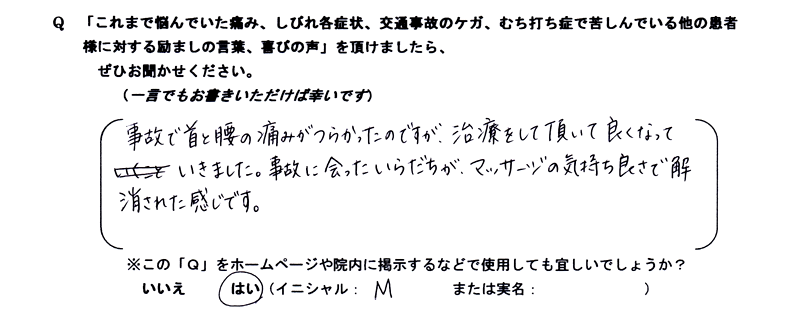 Q 「これまで悩んでいた痛み、しびれ各症状、交通事故のケガ、むち打ち症で苦しんでいる他の患者
様に対する励ましの言葉、喜びの声」を頂けましたら、
ぜひお聞かせください。
（一言でもお書きいただけば幸いです）
事故で首と腰の痛みがつらかったのですが、治療をして頂いて良くなって
いきました。事故に会ったいらだちが、マッサージの気持ち良さで解
消された感じです。
※この「Q」をホームページや院内に掲示するなどで使用しても宜しいでしょうか？
いいえ はい（イニシャル： M または実名： ）